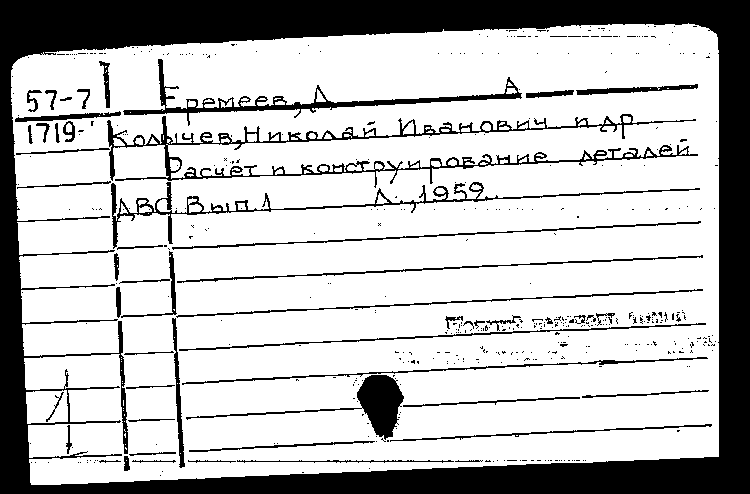 57-7 Еремеев, Д А
1719- Колычев, Николай Иванович и др
Расчёт и конструирование деталей
ДВС. Вып. 1 Л., 1959.
1